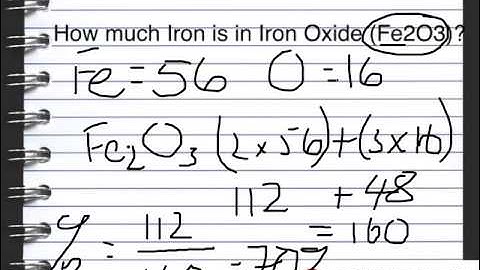 How much Iron is in Iron Oxide (Fe2O3)?
Fe = 56 O = 16
Fe2O3 (2 x 56) + (3 x 16)
112 + 48
= 160
% = 112